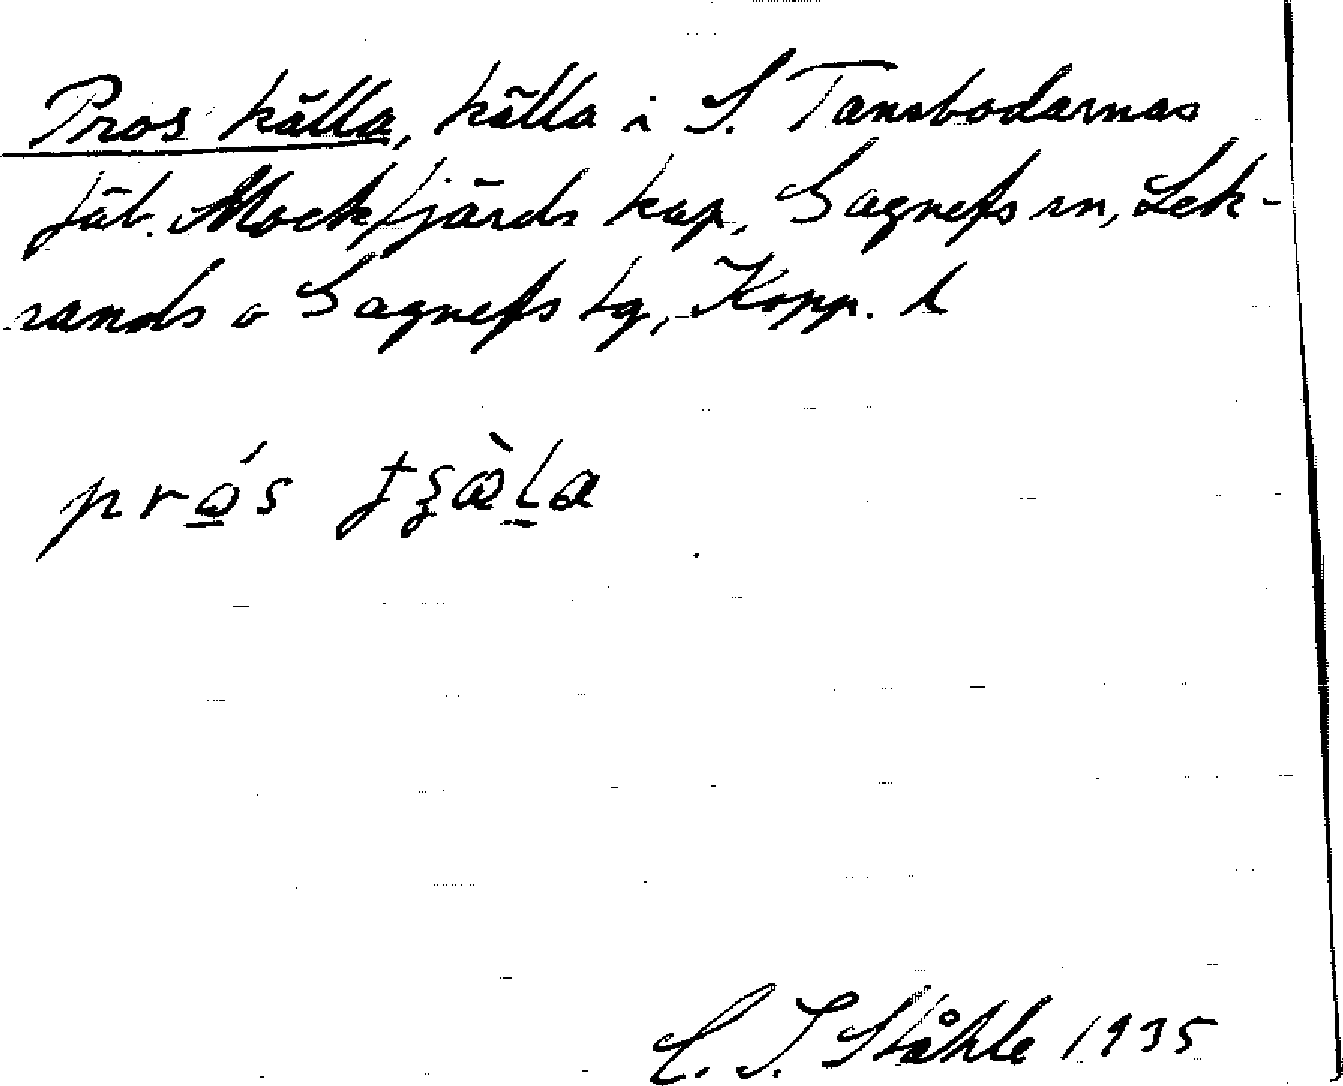 Pros källa, källa i S. Tansbodarnas
fäb. Mockfjärds kap, Gagnefs sn, Lek-
sands o Gagnefs tg, Kopp. l
C. I. Ståhle 1935